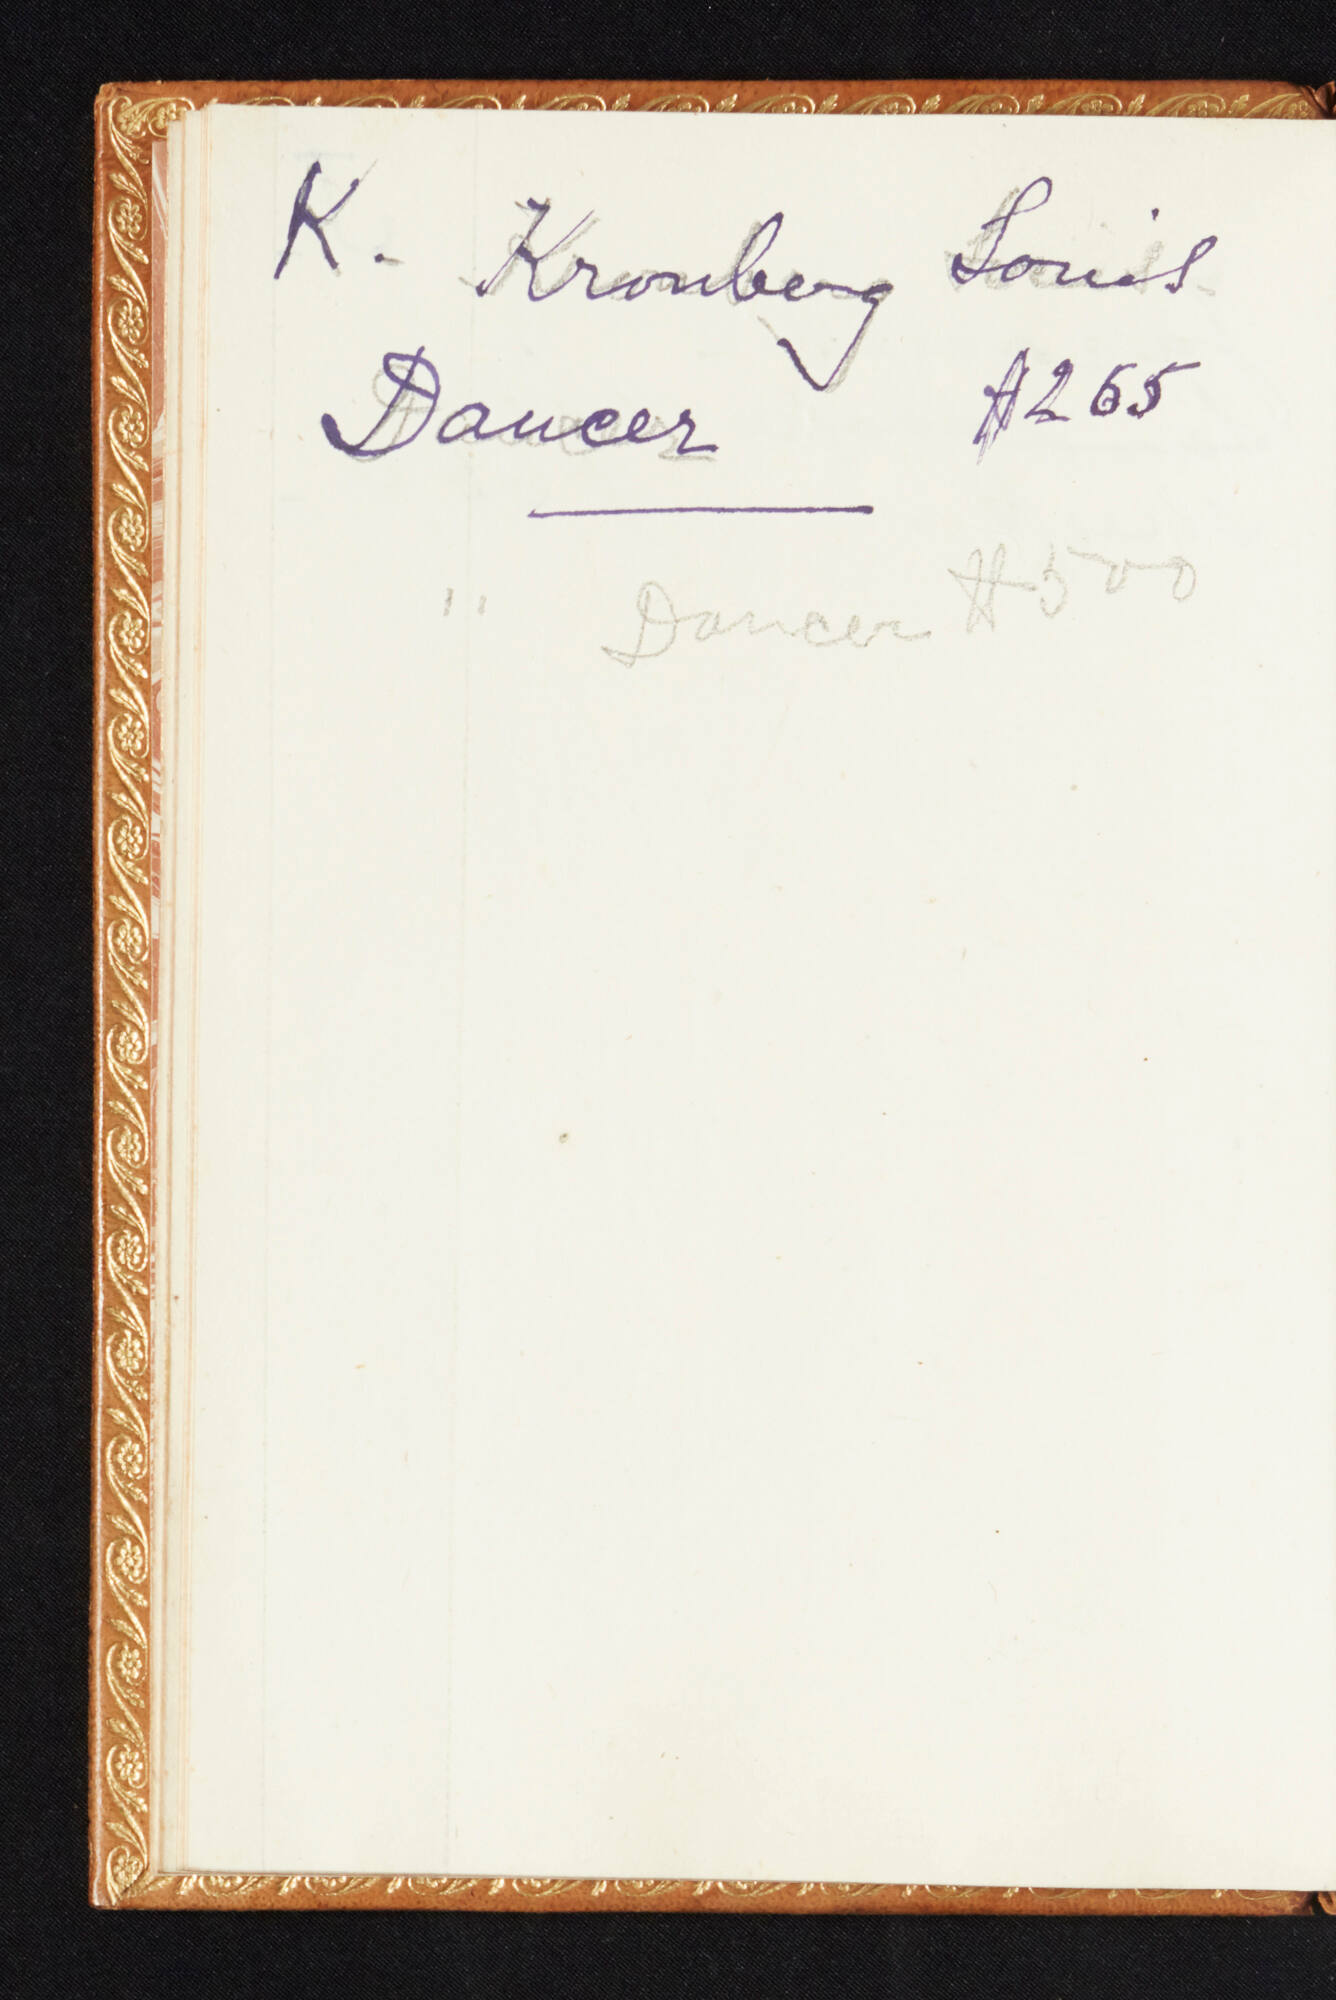 K. Kronberg Louis
Dancer $265
" Dancer $500